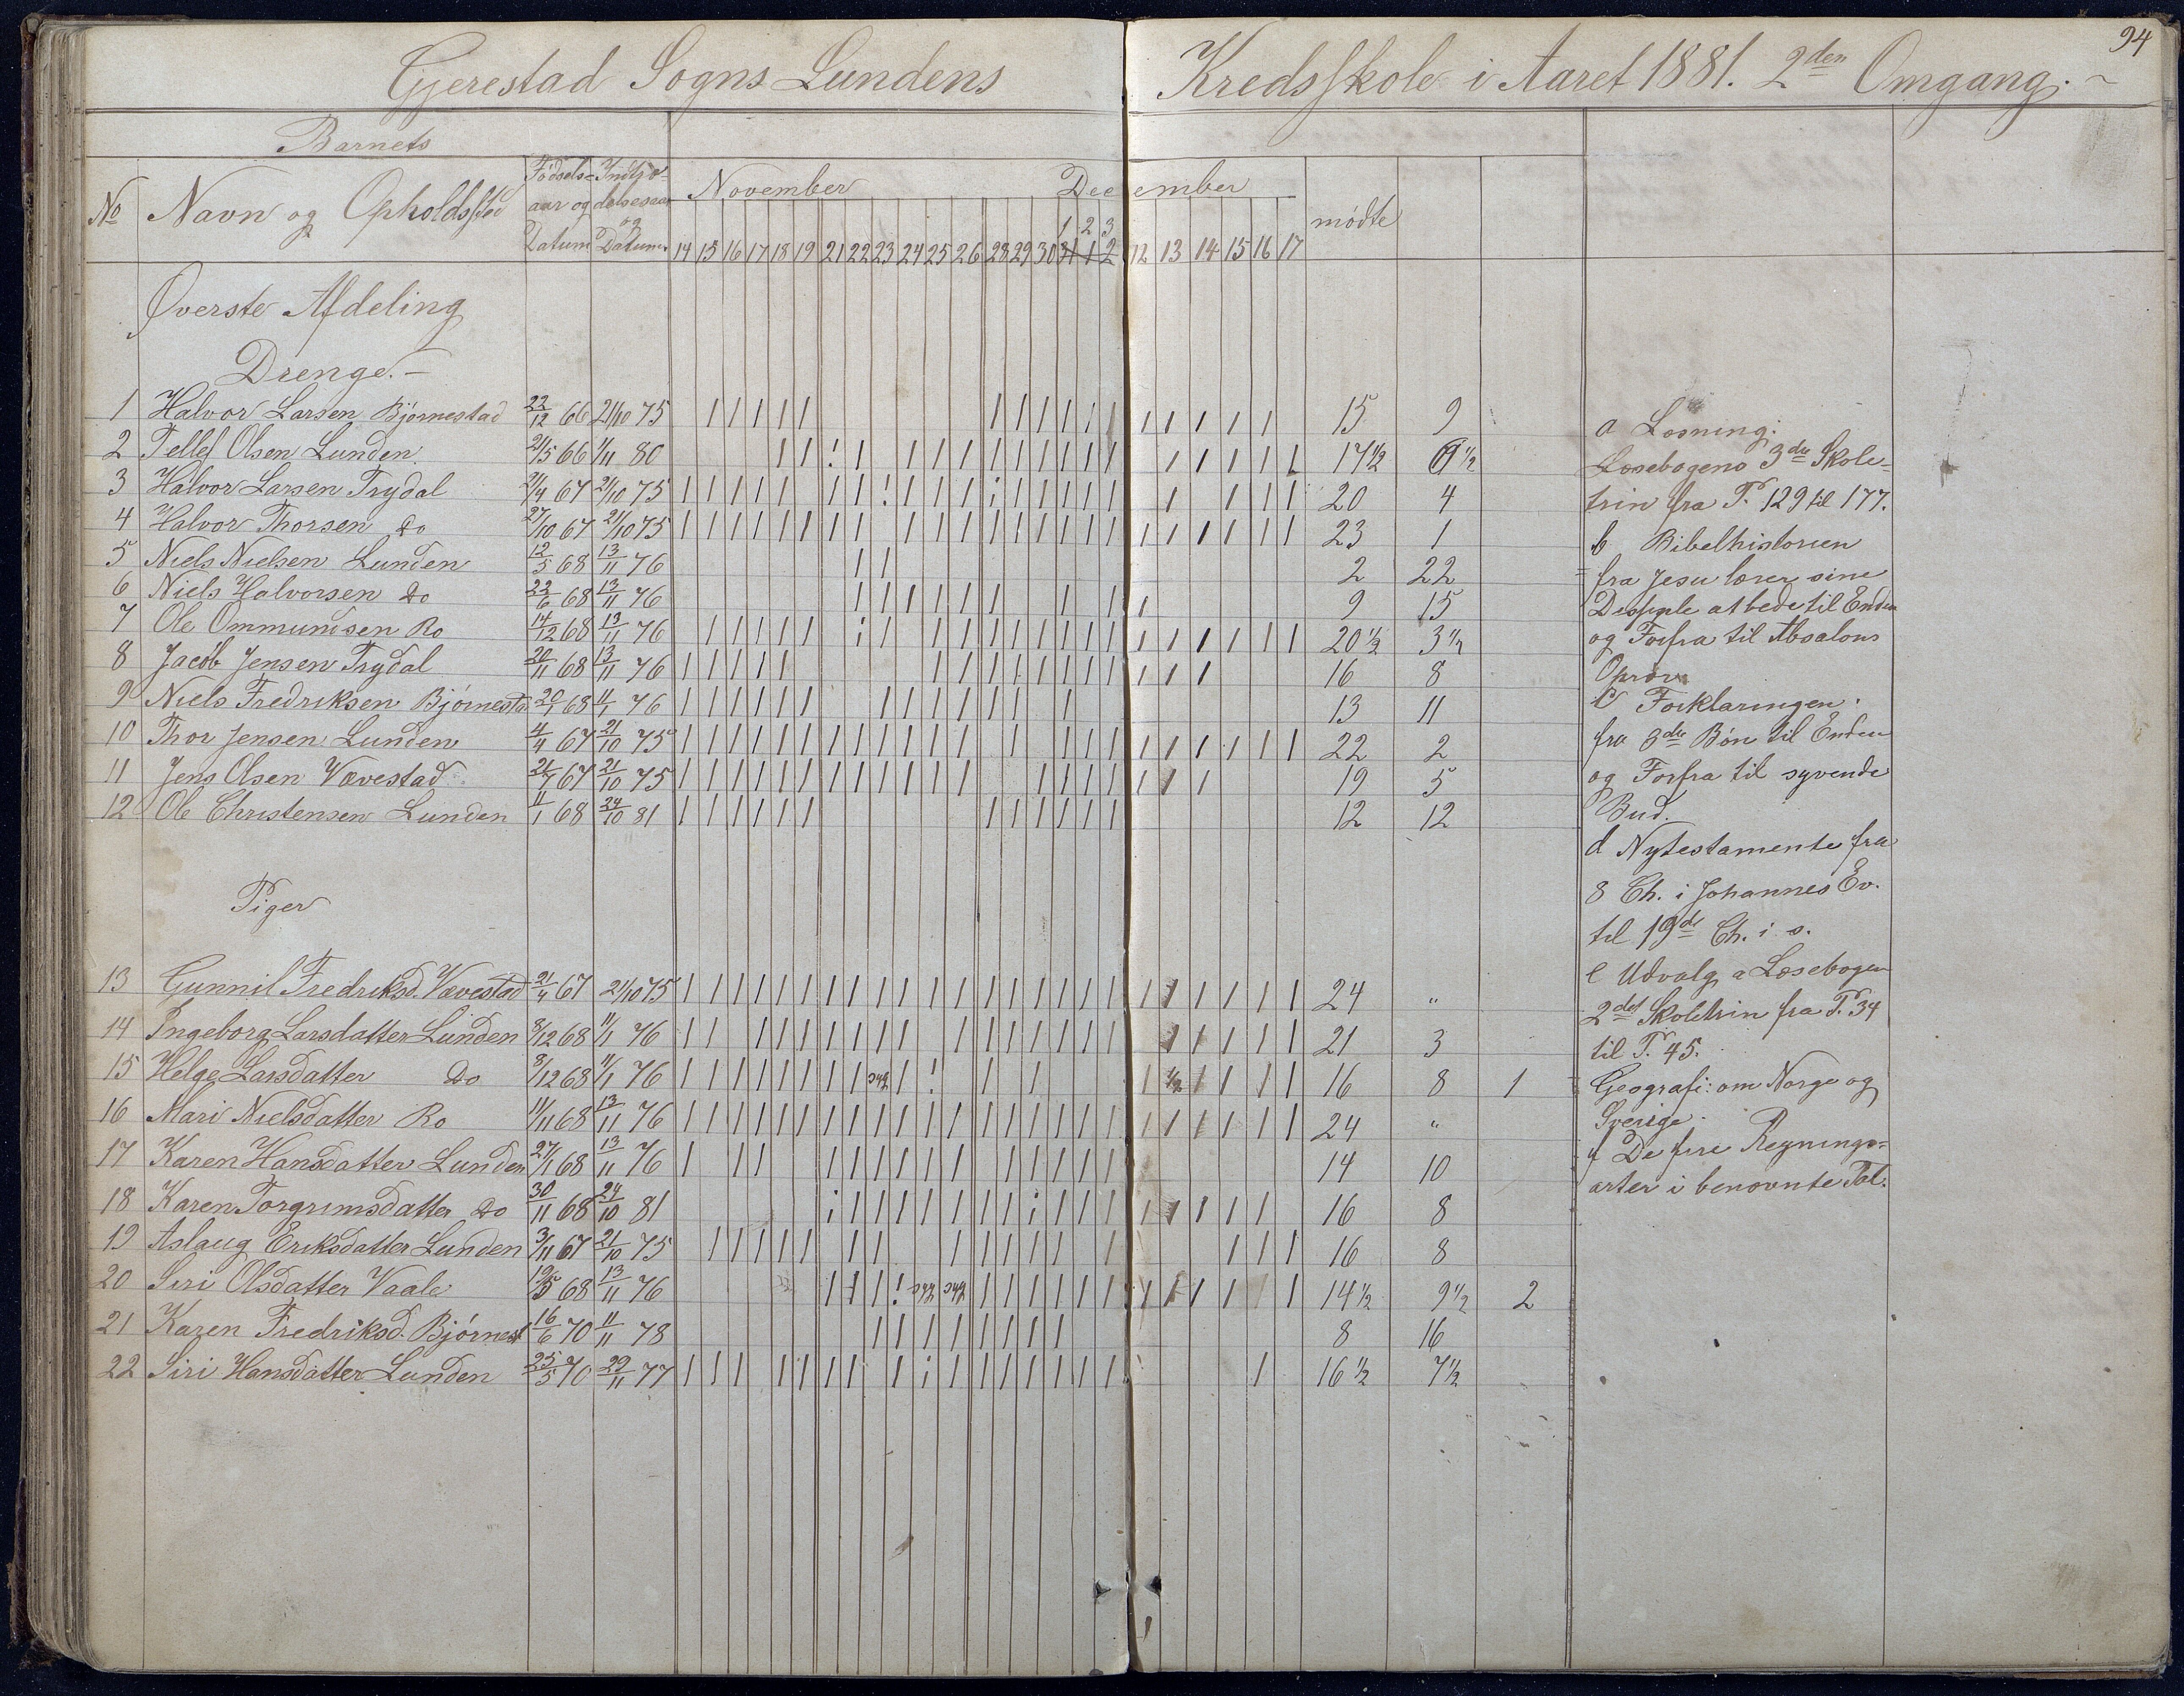 94
Gjerestad Sogns Lundens Kredsskole i Aaret 1881. 2den Omgang.
Barnets
No Navn og Opholdssted Födsels- aar og Datum Indtræ- delsesaar og Datum November December mödte
1 2 3
14 15 16 17 18 19 21 22 23 24 25 26 28 29 30 31 1 2 12 13 14 15 16 17
Øverste Afdeling
Drenge.
1 Halvor Larsen Bjørnestad 22/12 66 21/10 75 15 9
2 Tellef Olsen Lunden 21/5 66 1/11 80 17 1/2 6 1/2
3 Halvor Larsen Trydal 2/4 67 21/10 75 20 4
4 Halvor Thorsen Do 27/10 67 21/10 75 23 1
5 Niels Nielsen Lunden 12/5 68 13/11 76 2 22
6 Niels Halvorsen Do 22/6 68 13/11 76 9 15
7 Ole Ommundsen Ro 14/12 68 13/11 76 20 1/2 3 1/2
8 Jacob Jensen Trydal 20/11 68 13/11 76 16 8
9 Niels Fredriksen Bjørnesta 20/1 68 11/1 76 13 11
10 Thor Jensen Lunden 4/4 67 21/10 75 22 2
11 Jens Olsen Vævestad 21/7 67 21/10 75 19 5
12 Ole Christensen Lunden 11/1 68 24/10 81 12 12
Piger
13 Gunnil Fredriksd. Vævestad 21/4 67 21/10 75 24 "
14 Ingeborg Larsdatter Lunden 8/12 68 11/1 76 21 3
15 Helge Larsdatter Do 8/12 68 11/1 76 syg 1/2 16 8 1
16 Mari Nielsdatter Ro 11/11 68 13/11 76 24 "
17 Karen Hansdatter Lunden 27/1 68 13/11 76 14 10
18 Karen Torgrimsdatter Do 30/11 68 24/10 81 16 8
19 Aslaug Eriksdatter Lunden 3/11 67 21/10 75 16 8
20 Siri Olsdatter Vaale 19/5 68 13/11 76 syg syg 14 1/2 9 1/2 2
21 Karen Fredriksd. Bjørnest 16/6 70 11/11 78 8 16
22 Siri Hansdatter Lunden 25/5 70 29/11 77 16 1/2 7 1/2
a Læsning:
Læsebogens 3die Skole-
trin fra P. 129 til 177.
b Bibelhistorien
fra Jesu lærer sine
Disciple at bede til Enden
og Forfra til Absalons
Oprør
c Forklaringen:
fra 3die Bøn til Enden
og Forfra til syvende
Bud.
d Nytestamente fra
8 Ch. i Johannes Ev.
til 19de Ch. i s.
e Udvalg a Læsebogen
2det Skoletrin fra P. 34
til P. 45.
Geografi: om Norge og
Sverige.
f De fire Regnings-
arter i benævnte Tal.